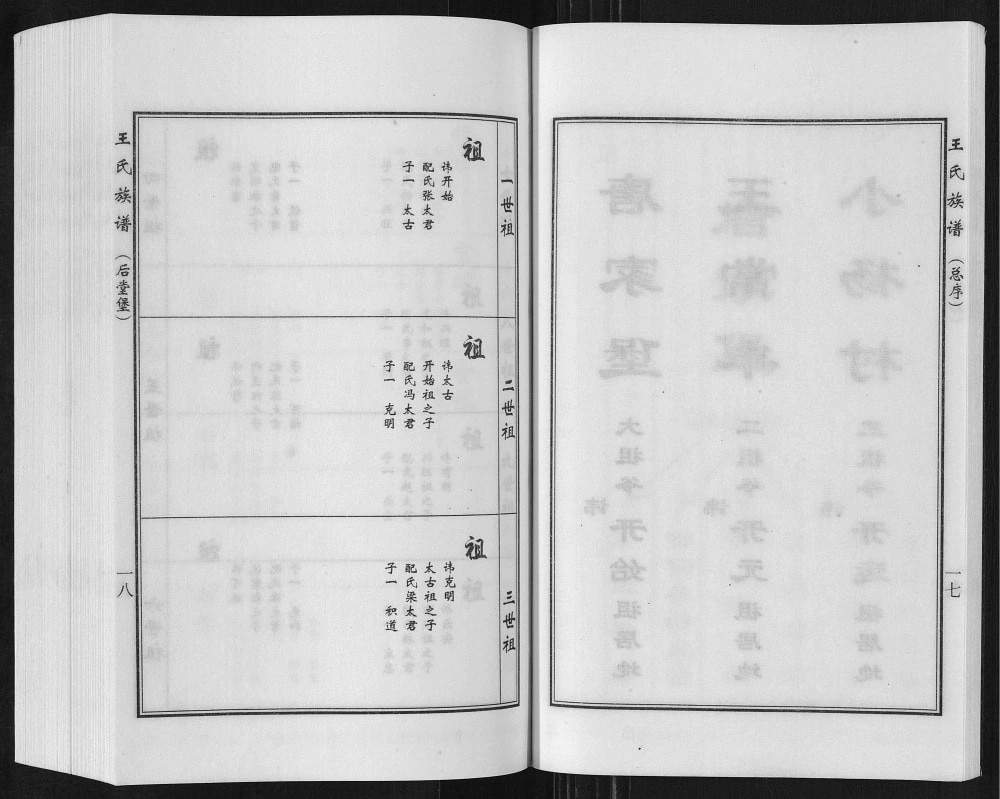 王氏族谱（总序）
一七
一世祖
祖
讳开始
配氏张太君
子一 太古
二世祖
祖
讳太古
开始祖之子
配氏冯太君
子一 克明
三世祖
祖
讳克明
太古祖之子
配氏梁太君
子一 积道
王氏族谱（后堂堡）
一八